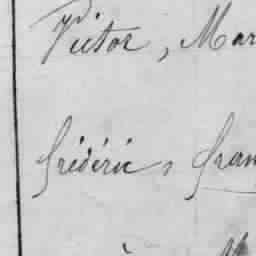 Victor, Mar
frédéric, fran